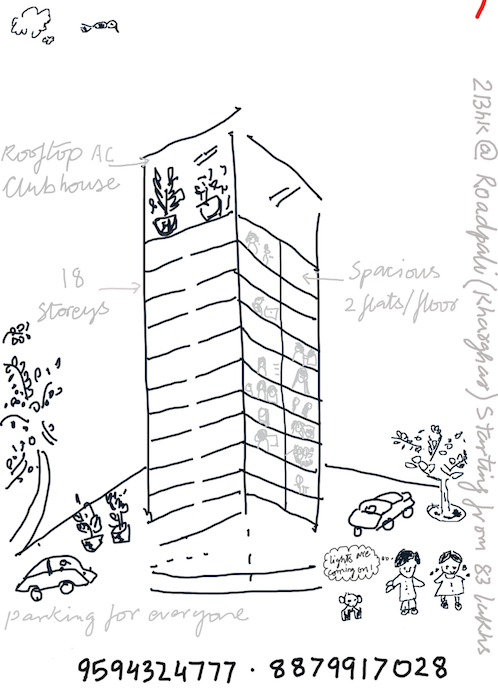 Rooftop AC
Clubhouse
18
Storeys
Spacious
2 flats/floor
2Bhk @ Roadpali (Kharghar) Starting from 83 lakhs
lights are
coming on!
parking for everyone
9594324777 · 8879917028